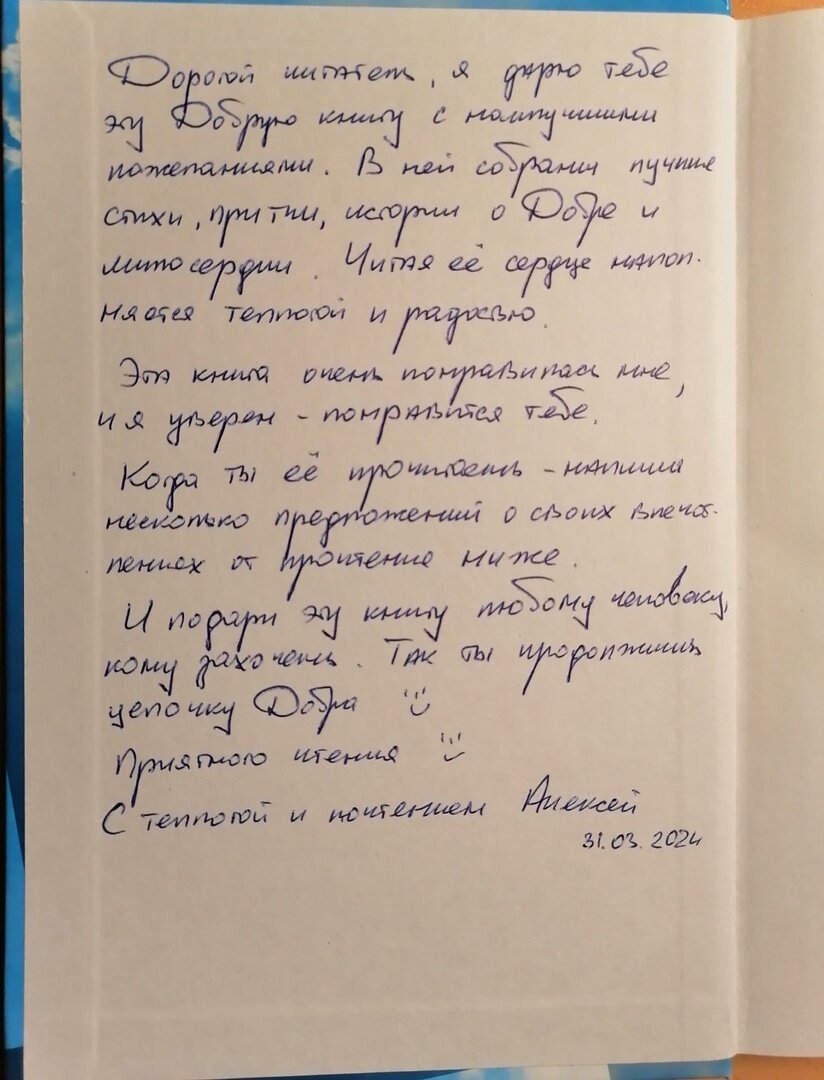 Дорогой читатель, я дарю тебе
эту Добрую книгу с наилучшими
пожеланиями. В ней собраны лучшие
стихи, притчи, истории о Добре и
милосердии. Читая её сердце напол-
няется теплотой и радостью.
Эта книга очень понравилась мне,
и я уверен - понравится тебе.
Когда ты её прочитаешь - напиши
несколько предложений о своих впечат-
лениях от прочтение ниже.
И подари эту книгу любому человеку,
кому захочешь. Так ты продолжишь
цепочку Добра
Приятного чтения
С теплотой и почтением Алексей
31.03.2024